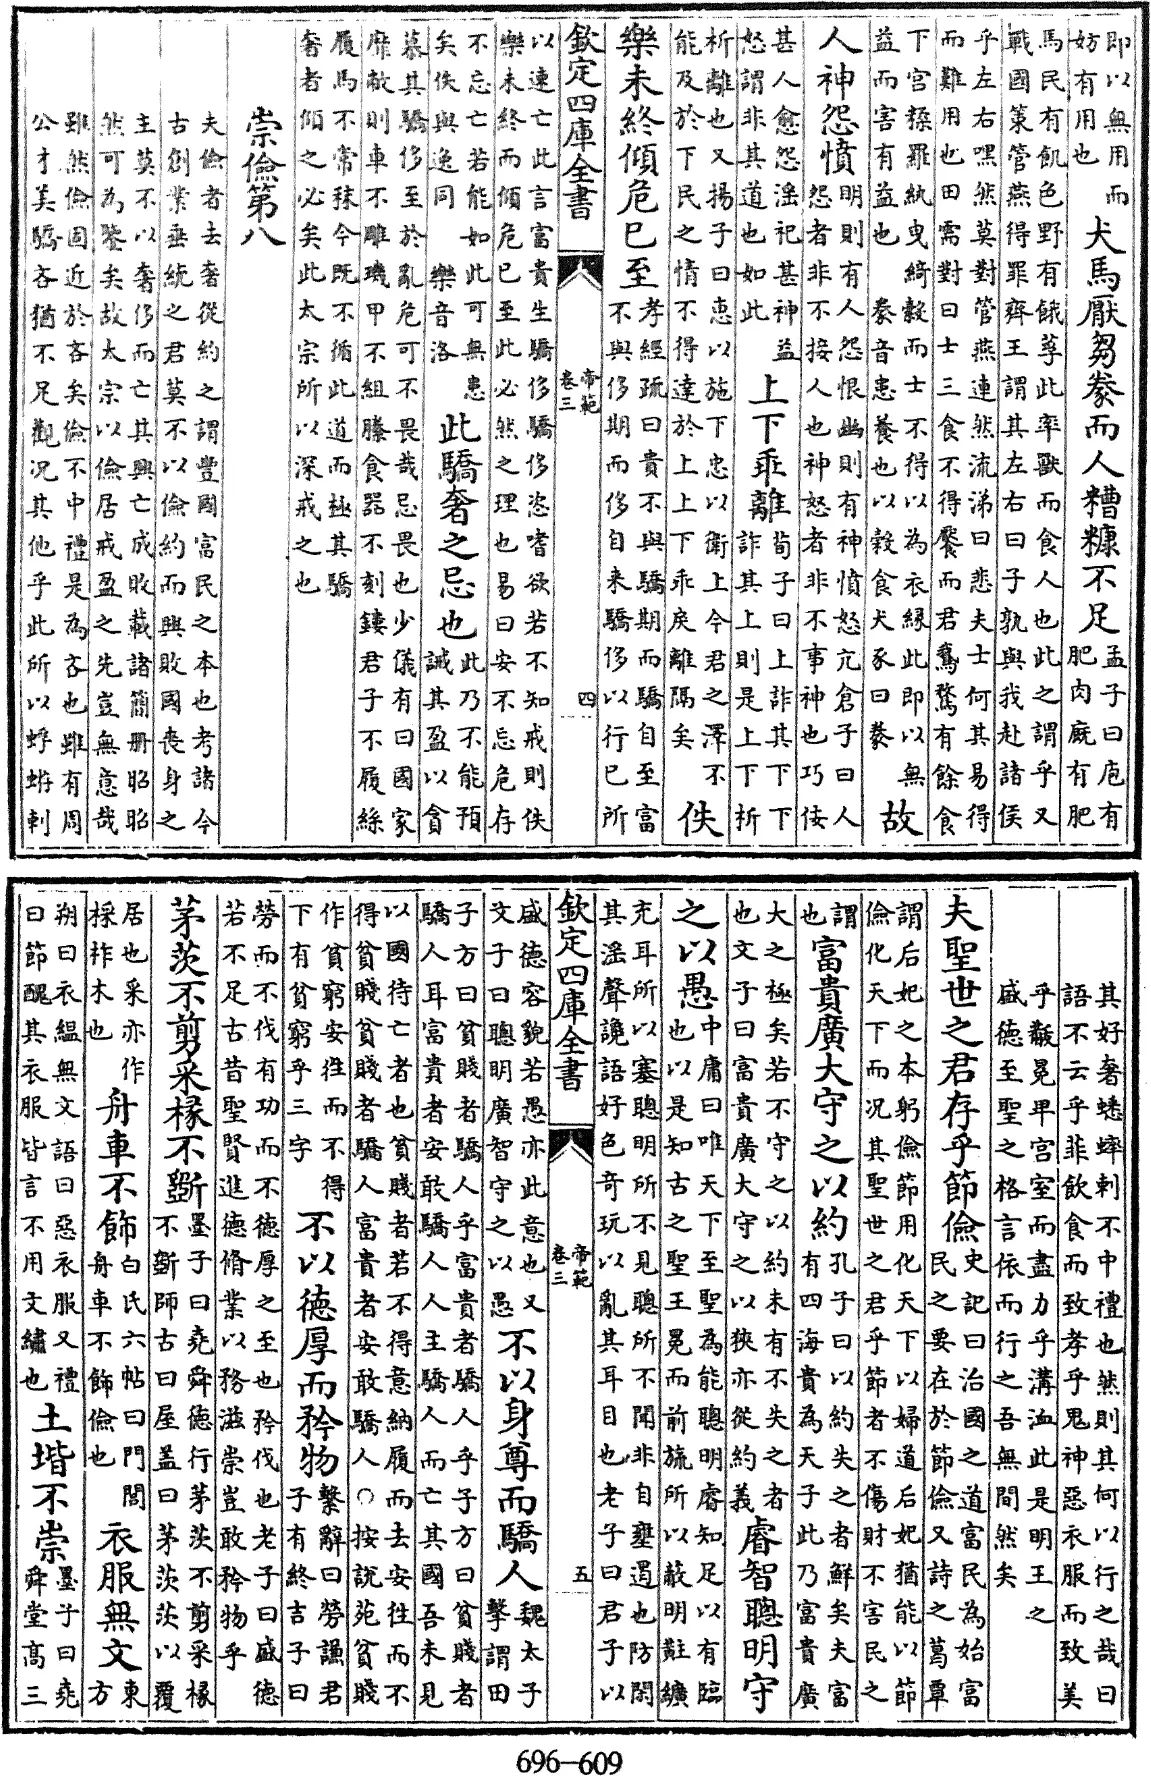 即以無用而妨有用也犬馬厭芻豢而人糟糠不足孟子曰庖有肥肉廐有肥
馬民有飢色野有餓莩此率獸而食人也此之謂乎又戰國策管燕得罪齊王謂其左右曰子孰與我赴諸侯
乎左右嘿然莫對管燕連然流涕曰悲夫士何其易得而難用也田需對曰士三食不得饜而君鵞鶩有餘食
下宮糅羅紈曳綺縠而士不得以為衣縁此即以無益而害有益也 豢音患養也以穀食犬豕曰豢故
人神怨憤明則有人怨恨幽則有神憤怒亢倉子曰人怨者非不接人也神怒者非不事神也巧佞
甚人愈怨滛祀甚神益怒謂非其道也如此上下乖離荀子曰上詐其下下詐其上則是上下析
析離也又揚子曰惠以施下忠以衛上今君之澤不能及於下民之情不得達於上上下乖戾離隔矣佚
樂未終傾危已至孝經疏曰貴不與驕期而驕自至富不與侈期而侈自来驕侈以行已所
欽定四庫全書 帝範卷三 四
以速亡此言富貴生驕侈驕侈恣嗜欲若不知戒則佚樂未終而傾危已至此必然之理也易曰安不忘危存
不忘亡若能如此可無患矣佚與逸同 樂音洛此驕奢之忌也此乃不能預誡其盈以貪
慕其驕侈至於亂危可不畏哉忌畏也少儀有曰國家靡敝則車不雕璣甲不組縢食器不刻鏤君子不履絲
履馬不常秣今既不循此道而極其驕奢者傾之必矣此太宗所以深戒之也
崇儉第八
夫儉者去奢從約之謂豐國富民之本也考諸今古創業垂統之君莫不以儉約而興敗國喪身之
主莫不以奢侈而亡其興亡成敗載諸簡冊昭昭然可為鑒矣故太宗以儉居戒盈之先豈無意哉
雖然儉固近於吝矣儉不中禮是為吝也雖有周公才美驕吝猶不足觀况其他乎此所以蜉蝣刺
其好奢蟋蟀刺不中禮也然則其何以行之哉曰語不云乎菲飲食而致孝乎鬼神惡衣服而致美
乎黻冕卑宮室而盡力乎溝洫此是明王之盛德至聖之格言依而行之吾無間然矣
夫聖世之君存乎節儉史記曰治國之道富民為始富民之要在於節儉又詩之葛覃
謂后妃之本躬儉節用化天下以婦道后妃猶能以節儉化天下而况其聖世之君乎節者不傷財不害民之
謂也富貴廣大守之以約孔子曰以約失之者鮮矣夫富有四海貴為天子此乃富貴廣
大之極矣若不守之以約未有不失之者也文子曰富貴廣大守之以狹亦從約義睿智聰明守
之以愚中庸曰唯天下至聖為能聰明睿知足以有臨也以是知古之聖王冕而前旒所以蔽明黈纊
充耳所以塞聰明所不見聰所不聞非自壅遏也防閑其滛聲讒語好色奇玩以亂其耳目也老子曰君子以
欽定四庫全書 帝範卷三 五
盛德容貌若愚亦此意也又文子曰聰明廣智守之以愚不以身尊而驕人魏太子擊謂田
子方曰貧賤者驕人乎富貴者驕人乎子方曰貧賤者驕人耳富貴者安敢驕人人主驕人而亡其國吾未見
以國待亡者也貧賤者若不得意納履而去安往而不得貧賤貧賤者驕人富貴者安敢驕人○按說苑貧賤
作貧窮安往而不得下有貧窮乎三字不以德厚而矜物繫辭曰勞謙君子有終吉子曰
勞而不伐有功而不德厚之至也矜伐也老子曰盛德若不足古昔聖賢進德脩業以務滋崇豈敢矜物乎
茅茨不剪采椽不斵墨子曰堯舜德行茅茨不剪采椽不斵師古曰屋盖曰茅茨茨以覆
居也采亦作採柞木也舟車不飾白氏六帖曰門閭舟車不飾儉也衣服無文東方
朔曰衣緼無文語曰惡衣服又禮曰節醜其衣服皆言不用文繡也土堦不崇墨子曰堯舜堂髙三
696-609